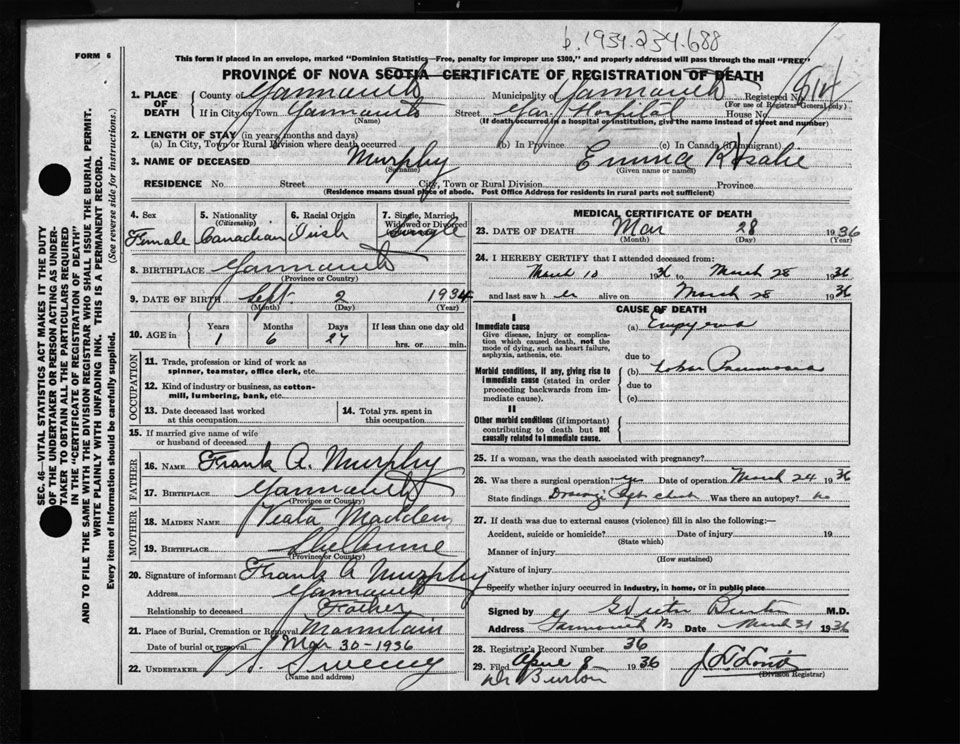 b.1934.234.688
FORM 6
This form if placed in an envelope, marked "Dominion Statistics—Free, penalty for improper use $300," and properly addressed will pass through the mail "FREE"
PROVINCE OF NOVA SCOTIA—CERTIFICATE OF REGISTRATION OF DEATH
1. PLACE OF DEATH
County of Yarmouth Municipality of Yarmouth Registered No. 514
(For use of Registrar General only)
If in City or Town Yarmouth Street Yar. Hospital House No.
(Name) (If death occurred in a hospital or institution, give the name instead of street and number)
2. LENGTH OF STAY (in years, months and days)
(a) In City, Town or Rural Division where death occurred (b) In Province (c) In Canada (if immigrant)
3. NAME OF DECEASED Murphy Emma Rosalie
(Surname) (Given name or names)
RESIDENCE No. Street City, Town or Rural Division Province
(Residence means usual place of abode. Post Office Address for residents in rural parts not sufficient)
4. Sex Female
5. Nationality (Citizenship) Canadian
6. Racial Origin Irish
7. Single, Married, Widowed or Divorced Single
8. BIRTHPLACE Yarmouth
(Province or Country)
9. DATE OF BIRTH Sept 2 1934
(Month) (Day) (Year)
10. AGE in Years Months Days If less than one day old
1 6 27 hrs. or min.
OCCUPATION
11. Trade, profession or kind of work as
spinner, teamster, office clerk, etc.
12. Kind of industry or business, as cotton-
mill, lumbering, bank, etc.
13. Date deceased last worked
at this occupation
14. Total yrs. spent in
this occupation
15. If married give name of wife
or husband of deceased
FATHER
16. NAME Frank A. Murphy
17. BIRTHPLACE Yarmouth
(Province or Country)
MOTHER
18. MAIDEN NAME Veata Madden
19. BIRTHPLACE Shelburne
(Province or Country)
20. Signature of informant Frank A Murphy
Address Yarmouth
Relationship to deceased Father
21. Place of Burial, Cremation or Removal Mountain
Date of burial or removal Mar 30-1936
22. UNDERTAKER Sweeney
(Name and address)
MEDICAL CERTIFICATE OF DEATH
23. DATE OF DEATH Mar 28 1936
(Month) (Day) (Year)
24. I HEREBY CERTIFY that I attended deceased from:
March 10 1936 to March 28 1936
and last saw her alive on March 28 1936
CAUSE OF DEATH
I
Immediate cause
Give disease, injury or complica-
tion which caused death, not the
mode of dying, such as heart failure,
asphyxia, asthenia, etc.
(a) Empyema
due to
Morbid conditions, if any, giving rise to
immediate cause (stated in order
proceeding backwards from im-
mediate cause).
(b) Lobar Pneumonia
due to
(c)
II
Other morbid conditions (if important)
contributing to death but not
causally related to immediate cause.
25. If a woman, was the death associated with pregnancy?
26. Was there a surgical operation? yes Date of operation March 24 1936
State findings Was there an autopsy? no
27. If death was due to external causes (violence) fill in also the following:—
Accident, suicide or homicide? Date of injury 19
(State which)
Manner of injury
(How sustained)
Nature of injury
Specify whether injury occurred in industry, in home, or in public place
Signed by Burton M.D.
Address Yarmouth Date March 31 1936
28. Registrar's Record Number 36
29. Filed April 8 1936
(Division Registrar)
Dr Burton
SEC. 46—VITAL STATISTICS ACT MAKES IT THE DUTY
OF THE UNDERTAKER OR PERSON ACTING AS UNDER-
TAKER TO OBTAIN ALL THE PARTICULARS REQUIRED
IN THE "CERTIFICATE OF REGISTRATION OF DEATH"
AND TO FILE THE SAME WITH THE DIVISION REGISTRAR WHO SHALL ISSUE THE BURIAL PERMIT.
WRITE PLAINLY WITH UNFADING INK. THIS IS A PERMANENT RECORD.
Every item of information should be carefully supplied. (See reverse side for instructions.)